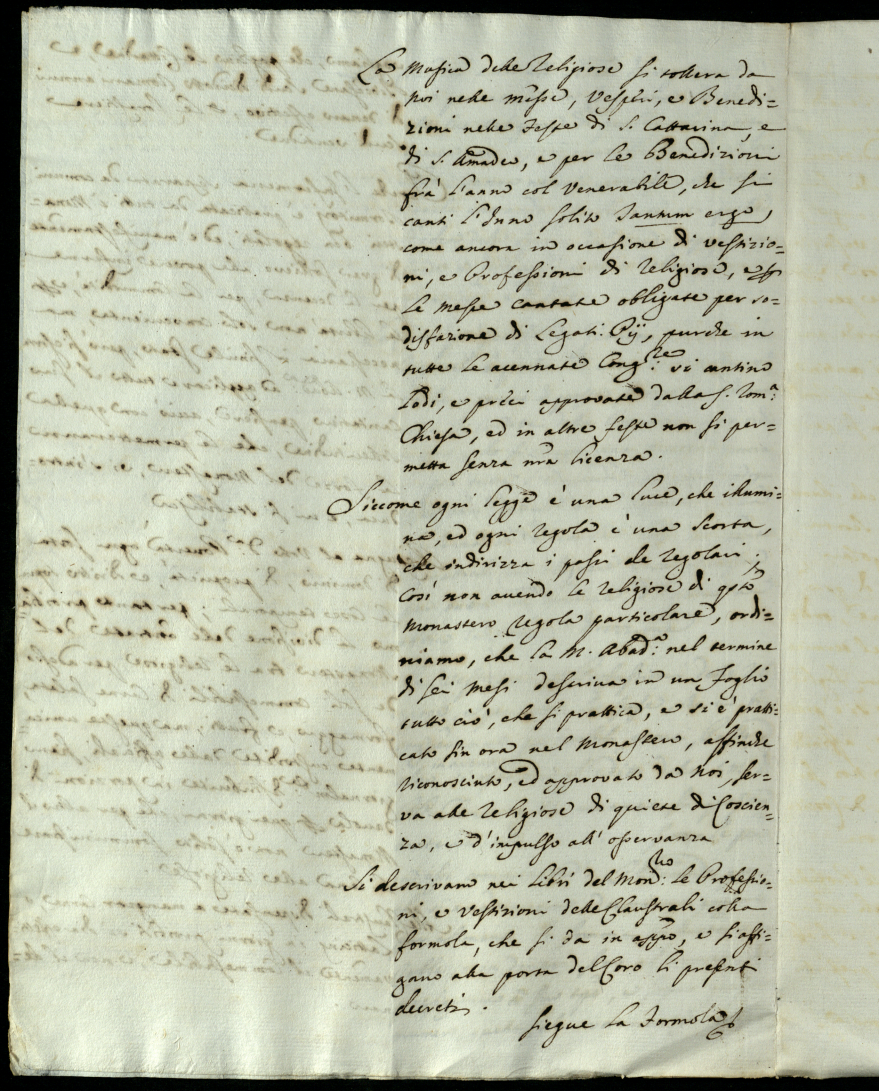 La Musica delle Religiose si tollera da
Noi nelle messe, Vesperi, e Benedi=
zioni nelle Feste di S. Cattarina, e
di S. Amadeo, e per le Benedizioni
frà l'anno col Venerabile, che si
canti l'Inno solito Tantum ergo,
come ancora in occasione di Vestizio=
ni, e Professioni di Religiose, e
le messe cantate obligate per so=
disfazione di Legati Pij, purche in
tutte le acennate Cong.re vi cantino
Lodi, e preci approvate dalla S. Rom.a
Chiesa, ed in altre feste non si per=
metta senza nra licenza.
Siccome ogni Legge è una luce, che illumi=
na, ed ogni regola è una scorta,
che indirizza i passi de regolari;
Così non avendo le Religiose di qsto
Monastero regola particolare, ordi=
niamo, che la M. Abad.a nel termine
di sei mesi descriva in un Foglio
tutto ciò, che si prattica, e si è pratti=
cato sin ora nel Monastero, affinche
riconosciuto, ed approvato da Noi, ser=
va alle Religiose di quiete di Coscien=
za, e d'impulso all'osservanza
Si descrivano nei Libri del Mon.rio le Professio=
ni, e Vestizioni delle Claustrali colla
formola, che si da in appo, e si affi=
gano alla porta del Coro li presenti
decreti.
Siegue la Formola